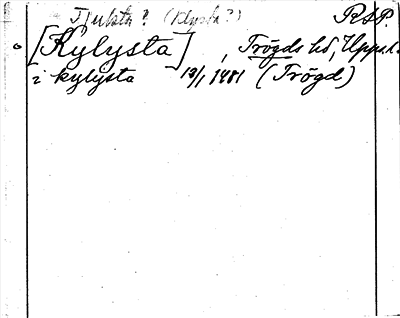 Tjulsta? (Klysta?) RAP.
[Kylysta], Trögds hd, Upps.l.
i kylysta 13/1 1481 (Trögd)